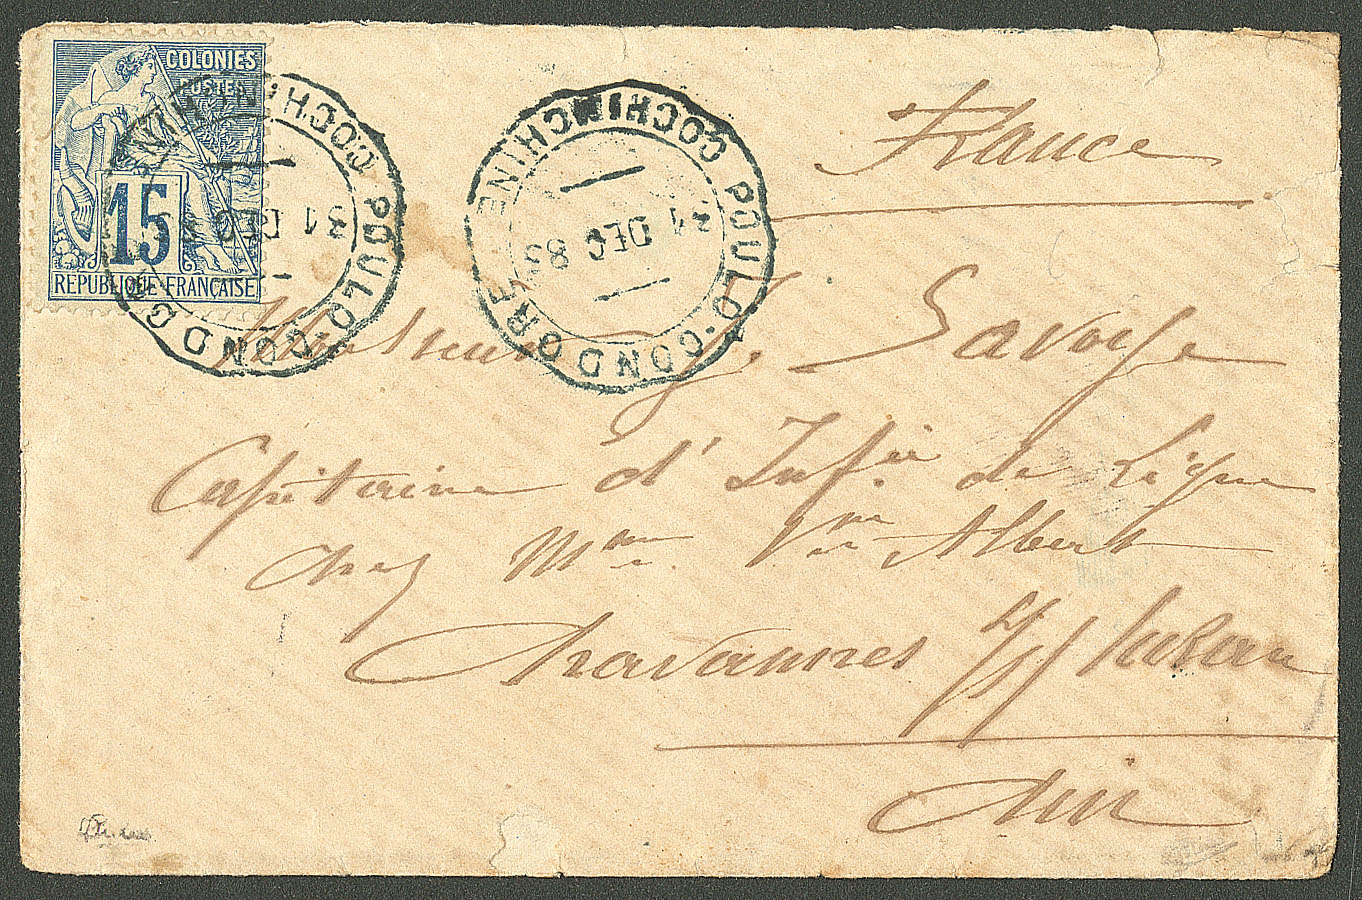 COLONIES
POSTES
15
REPUBLIQUE FRANÇAISE
COCHINCHINE
POULO-CONDORE
31 DEC
COCHINCHINE
POULO-CONDORE
31 DEC 89
France
Monsieur J. Savoye
Capitaine d'Inf.ie de Ligne
chez Mme Vve Albert
Chavannes s/
Ain